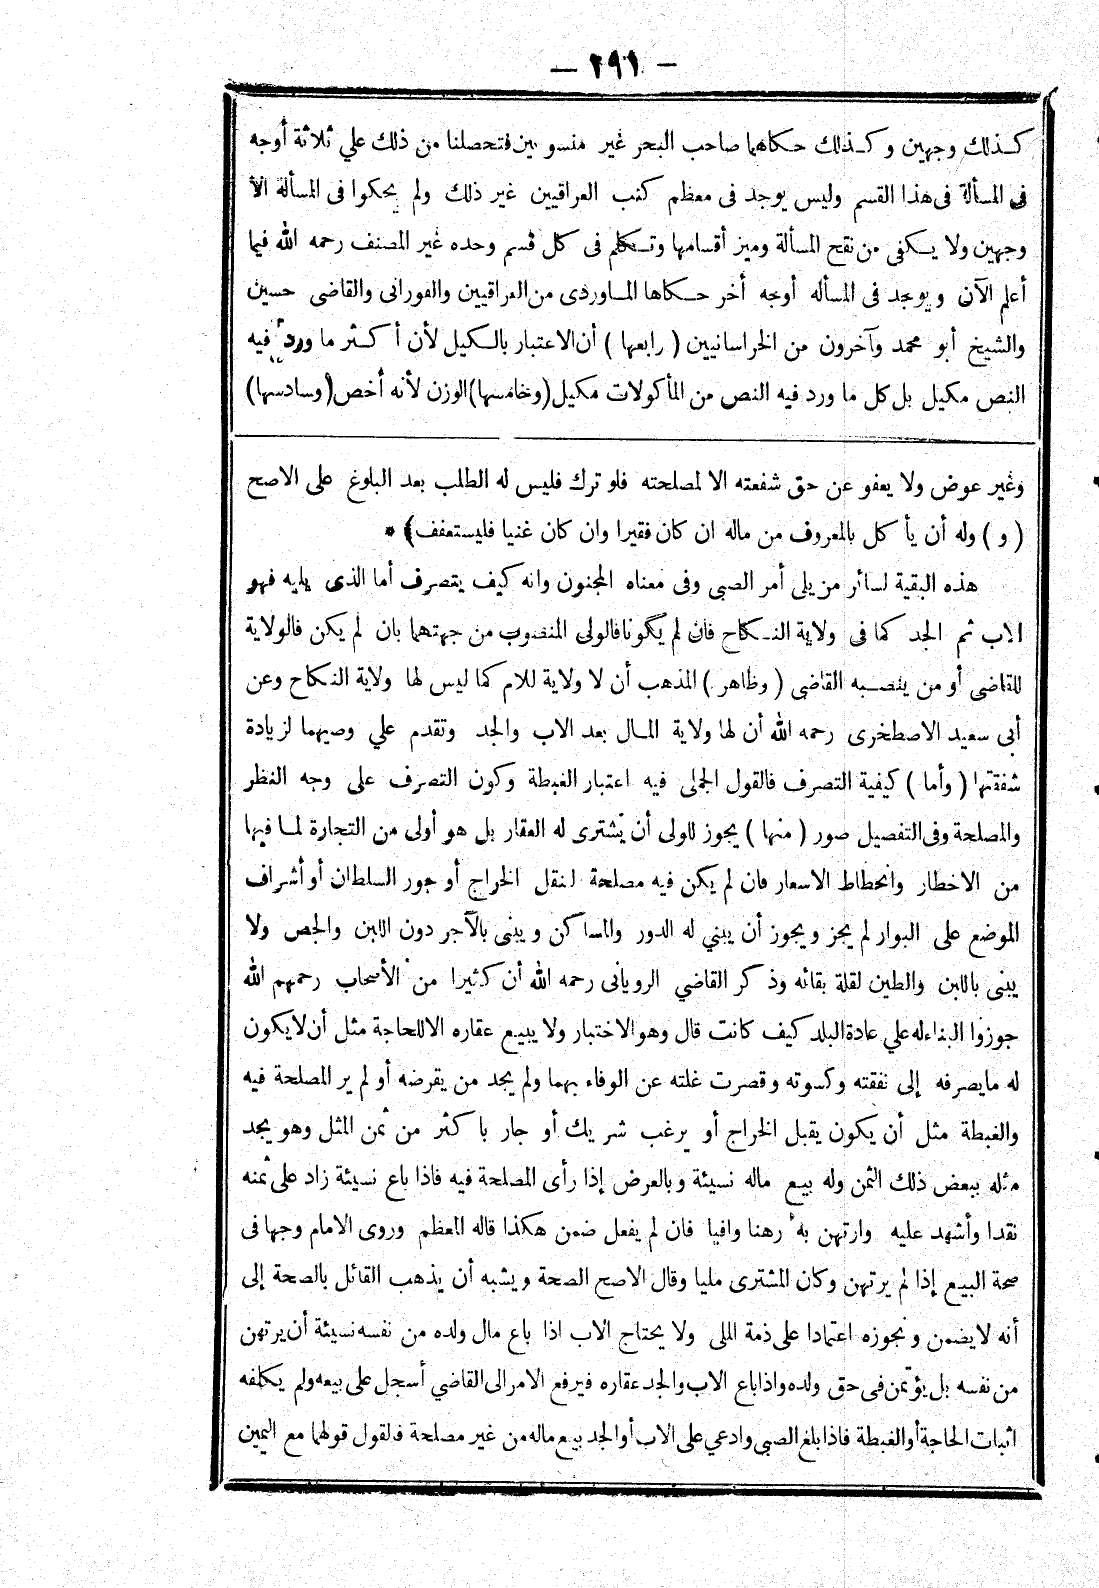 — ٢٩١ —
كذلك وجهين وكذلك حكاهما صاحب البحر غير منسوبين فتحصلنا من ذلك علي ثلاثة أوجه
في المسألة في هذا القسم وليس يوجد في معظم كتب العراقيين غير ذلك ولم يحكوا في المسألة الا
وجهين ولا يكفي من نقح المسألة وميز أقسامها وتكلم في كل قسم وحده غير المصنف رحمه الله فيما
أعلم الآن ويوجد في المسأله أوجه أخر حكاها الماوردى من العراقيين والفورانى والقاضى حسين
والشيخ أبو محمد وآخرون من الخراسانيين ( رابعها ) أن الاعتبار بالكيل لأن أكثر ما ورد فيه
النص مكيل بل كل ما ورد فيه النص من المأكولات مكيل (وخامسها) الوزن لأنه أخص (وسادسها)
وغير عوض ولا يعفو عن حق شفعته الا لمصلحته فلو ترك فليس له الطلب بعد البلوغ على الاصح
( و ) وله أن يأكل بالمعروف من ماله ان كان فقيرا وان كان غنيا فليستعفف ) *
هذه البقية لسائر من يلى أمر الصبي وفى معناه المجنون وانه كيف يتصرف أما الذى يليه فهو
الاب ثم الجد كما فى ولاية النكاح فان لم يكونا فالولى المنصوب من جهتهما بان لم يكن فالولاية
للقاضي أو من ينصبه القاضى ( وظاهر ) المذهب أن لا ولاية للام كما ليس لها ولاية النكاح وعن
أبى سعيد الاصطخرى رحمه الله أن لها ولاية المال بعد الاب والجد وتقدم علي وصيهما لزيادة
شفقتها ( وأما ) كيفية التصرف فالقول الجملى فيه اعتبار الغبطة وكون التصرف على وجه النظر
والمصلحة وفى التفصيل صور ( منها ) يجوز للولى أن يشترى له العقار بل هو أولى من التجارة لما فيها
من الاخطار وانحطاط الاسعار فان لم يكن فيه مصلحة لنقل الخراج أو جور السلطان أو أشراف
الموضع على البوار لم يجز ويجوز أن يبني له الدور والمساكن ويبنى بالآجر دون اللبن والجص ولا
يبنى باللبن والطين لقلة بقائه وذكر القاضي الرويانى رحمه الله أن كثيرا من الأصحاب رحمهم الله
جوزوا البناء له علي عادة البلد كيف كانت قال وهو الاختبار ولا يبيع عقاره الا للحاجة مثل أن لا يكون
له ما يصرفه إلى نفقته وكسوته وقصرت غلته عن الوفاء بهما ولم يجد من يقرضه أو لم ير المصلحة فيه
والغبطة مثل أن يكون يقبل الخراج أو يرغب شريك أو جار باكثر من ثمن المثل وهو يجد
مثله ببعض ذلك الثمن وله بيع ماله نسيئة وبالعرض إذا رأى المصلحة فيه فاذا باع نسيئة زاد على ثمنه
نقدا وأشهد عليه وارتهن به رهنا وافيا فان لم يفعل ضمن هكذا قاله المعظم وروى الامام وجها فى
صحة البيع إذا لم يرتهن وكان المشترى مليا وقال الاصح الصحة ويشبه أن يذهب القائل بالصحة إلى
أنه لا يضمن ونجوزه اعتمادا على ذمة الملى ولا يحتاج الاب اذا باع مال ولده من نفسه نسيئة أن يرتهن
من نفسه بل يؤتمن فى حق ولده واذا باع الاب والجد عقاره فيرفع الامر الى القاضي أسجل على بيعه ولم يكلفه
اثبات الحاجة أو الغبطة فاذا بلغ الصبي وادعي على الاب أو الجد بيع ماله من غير مصلحة فالقول قولهما مع اليمين